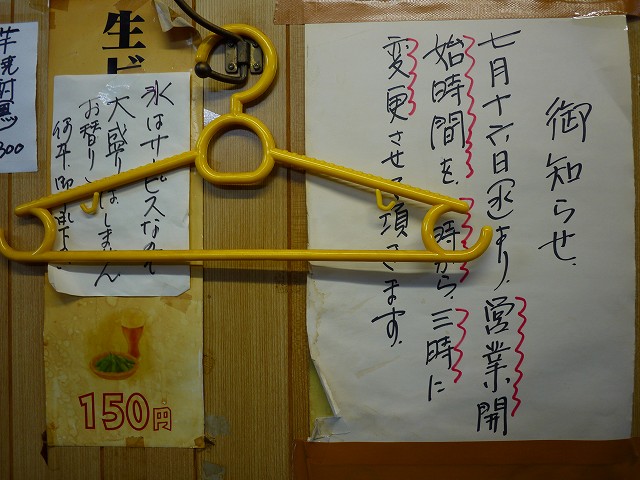 御知らせ.
七月十六日(水)より、営業開
始時間を、時から、三時に
変更させて頂きます。
生ビ
氷はサービスなので
大盛りはしません
お替り
150円
300